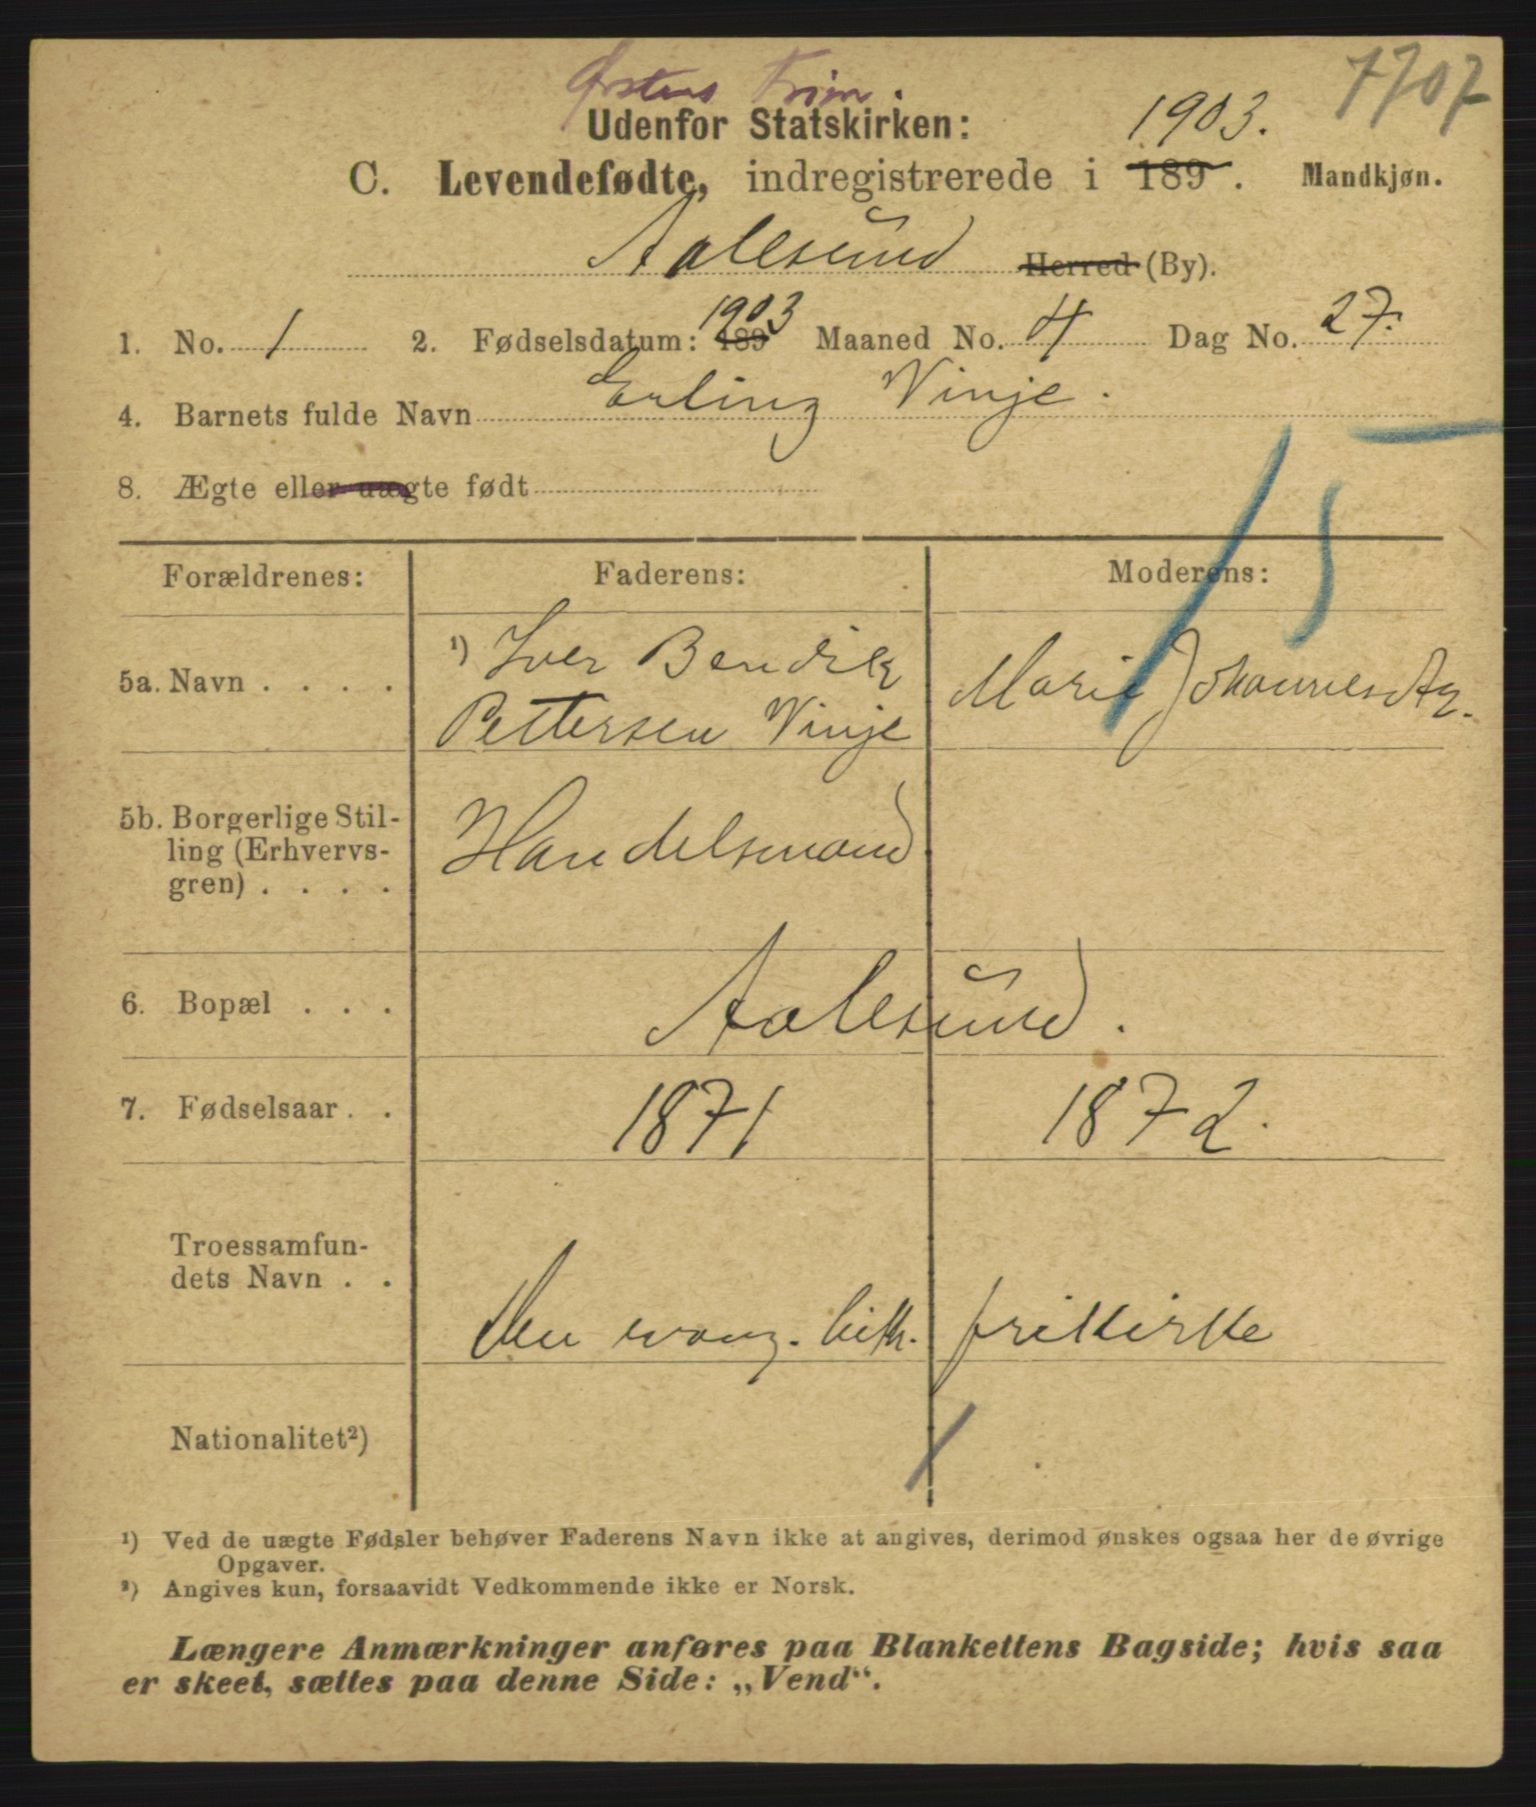 Ørstens Frim.
7707
Udenfor Statskirken:
1903.
C. Levendefødte, indregistrerede i 189 . Mandkjøn.
Aalesund Herred (By).
1. No. 1 2. Fødselsdatum: 189 1903 Maaned No. 4 Dag No. 27.
4. Barnets fulde Navn Erling Vinje.
8. Ægte eller uægte født
15
Forældrenes: Faderens: Moderens:
¹) Iver Bendik
5a. Navn . . . . Marie Johannesdtr.
Pettersen Vinje
5b. Borgerlige Stil-
ling (Erhvervs- Handelsmand
gren) . . . .
6. Bopæl . . . Aalesund.
7. Fødselsaar . . 1871 1872.
Troessamfun-
dets Navn . .
Den evang. luth. frikirke
Nationalitet²)
¹) Ved de uægte Fødsler behøver Faderens Navn ikke at angives, derimod ønskes ogsaa her de øvrige
Opgaver.
²) Angives kun, forsaavidt Vedkommende ikke er Norsk.
Længere Anmærkninger anføres paa Blankettens Bagside; hvis saa
er skeet, sættes paa denne Side: „Vend“.